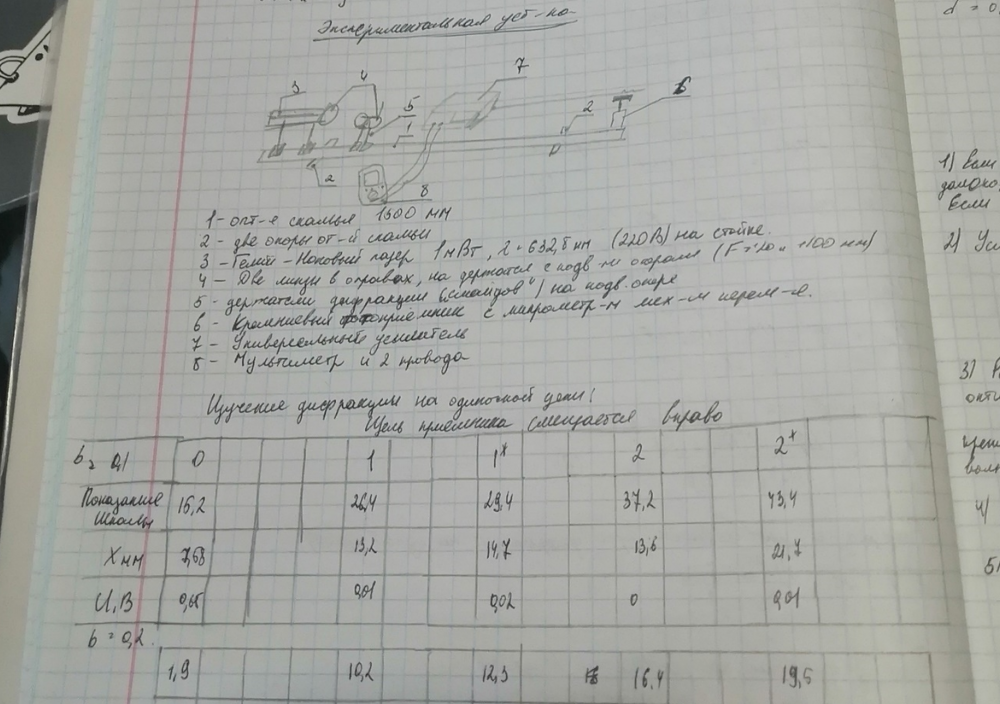 Экспериментальная уст-ка
3 4 5 7 1 2 6
2 8
1 - опт-я скамья 1500 мм
2 - две опоры опт-й скамьи
3 - Гелий-Неоновый лазер 1 мВт, λ = 632,8 нм (220В) на стойке.
4 - Две линзы в оправах, на держателя с подв-ми опорами (F = 20 и +100 мм)
5 - держатели дифракции "слайдов") на подв. опоре
6 - Кремниевый фотоприемник с микрометр-м мех-м перем-я.
7 - Универсальный усилитель
8 - Мультиметр и 2 провода
Изучение дифракции на одиночной щели!
Щель приемника смещается вправо
b = 0,1 0 1 1* 2 2*
Показание шкалы 16,2 26,4 29,4 37,2 43,4
X мм 13,2 14,7 13,6 21,7
U, В 0,01 0,02 0 0,01
b = 0,2.
1,9 10,2 12,3 16,4 19,5
1) Если
Если
2)
3)
4)